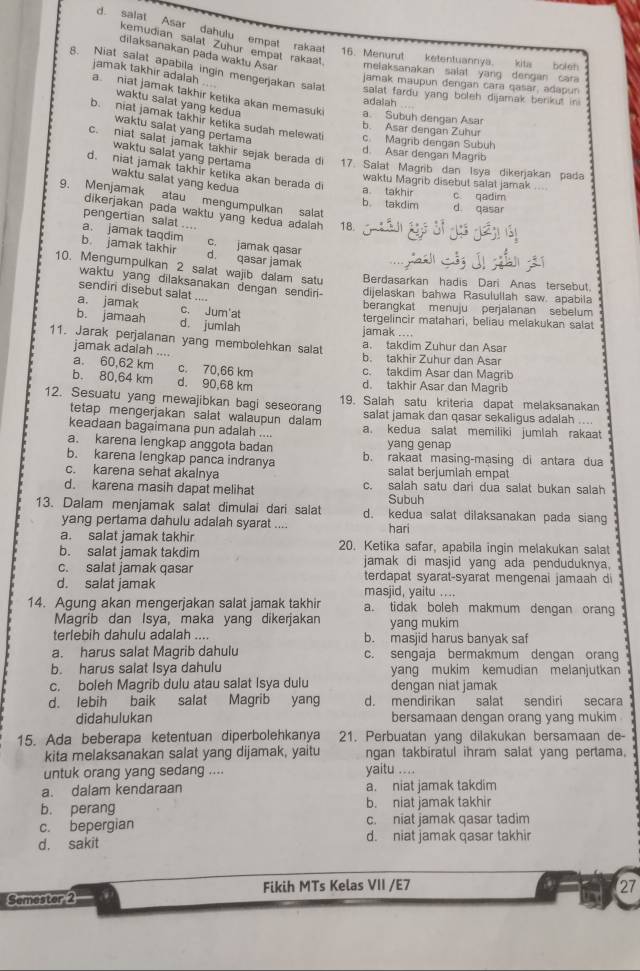 d. salat Asar dahulu empat rakaat
kemudian salat Zuhur empat rakaat,
dilaksanakan pada waktu Asar
8. Niat salat apabila ingin mengerjakan salat
jamak takhir adalah ....
a. niat jamak takhir ketika akan memasuki
waktu salat yang kedua
b. niat jamak takhir ketika sudah melewati
waktu salat yang pertama
c. niat salat jamak takhir sejak berada di
waktu salat yang pertama
d. niat jamak takhir ketika akan berada di
waktu salat yang kedua
9. Menjamak atau mengumpulkan salat
dikerjakan pada waktu yang kedua adalah
pengertian salat ....
a. jamak taqdim c. jamak qasar
b. jamak takhir d. qasar jamak
10. Mengumpulkan 2 salat wajib dalam satu
waktu yang dilaksanakan dengan sendiri-
sendiri disebut salat ....
a. jamak c. Jum'at
b. jamaah d. jumlah
11. Jarak perjalanan yang membolehkan salat
jamak adalah ....
a. 60,62 km c. 70,66 km
b. 80,64 km d. 90,68 km
12. Sesuatu yang mewajibkan bagi seseorang
tetap mengerjakan salat walaupun dalam
keadaan bagaimana pun adalah ....
a. karena lengkap anggota badan
b. karena lengkap panca indranya
c. karena sehat akalnya
d. karena masih dapat melihat
13. Dalam menjamak salat dimulai dari salat
yang pertama dahulu adalah syarat ....
a. salat jamak takhir
b. salat jamak takdim
c. salat jamak qasar
d. salat jamak
14. Agung akan mengerjakan salat jamak takhir
Magrib dan Isya, maka yang dikerjakan
terlebih dahulu adalah ....
a. harus salat Magrib dahulu
b. harus salat Isya dahulu
c. boleh Magrib dulu atau salat Isya dulu
d. lebih baik salat Magrib yang
didahulukan
15. Ada beberapa ketentuan diperbolehkanya
kita melaksanakan salat yang dijamak, yaitu
untuk orang yang sedang ....
a. dalam kendaraan
b. perang
c. bepergian
d. sakit
16. Menurut ketentuannya, kita boleh
melaksanakan salat yang dengan cara
jamak maupun dengan cara qasar, adapun
salat fardu yang boleh dijamak berikut ini
adalah ....
a. Subuh dengan Asar
b. Asar dengan Zuhur
c. Magrib dengan Subuh
d. Asar dengan Magrib
17. Salat Magrib dan Isya dikerjakan pada
waktu Magrib disebut salat jamak ....
a. takhir c. qadim
b. takdim d. qasar
18. إِذَا ارْتَحَلَ قَبْلَ أَنْ تَزِيْغَ الشَّمْسُ
أَخَّرَ الظُّهْرَ إِلَى وَقْتِ الْعَصْرِ....
Berdasarkan hadis Dari Anas tersebut,
dijelaskan bahwa Rasulullah saw. apabila
berangkat menuju perjalanan sebelum
tergelincir matahari, beliau melakukan salat
jamak ....
a. takdim Zuhur dan Asar
b. takhir Zuhur dan Asar
c. takdim Asar dan Magrib
d. takhir Asar dan Magrib
19. Salah satu kriteria dapat melaksanakan
salat jamak dan qasar sekaligus adalah ....
a. kedua salat memiliki jumlah rakaat
yang genap
b. rakaat masing-masing di antara dua
salat berjumlah empat
c. salah satu dari dua salat bukan salah
Subuh
d. kedua salat dilaksanakan pada siang
hari
20. Ketika safar, apabila ingin melakukan salat
jamak di masjid yang ada penduduknya,
terdapat syarat-syarat mengenai jamaah di
masjid, yaitu ....
a. tidak boleh makmum dengan orang
yang mukim
b. masjid harus banyak saf
c. sengaja bermakmum dengan orang
yang mukim kemudian melanjutkan
dengan niat jamak
d. mendirikan salat sendiri secara
bersamaan dengan orang yang mukim
21. Perbuatan yang dilakukan bersamaan de-
ngan takbiratul ihram salat yang pertama,
yaitu ....
a. niat jamak takdim
b. niat jamak takhir
c. niat jamak qasar tadim
d. niat jamak qasar takhir
Semester 2
Fikih MTs Kelas VII /E7
27